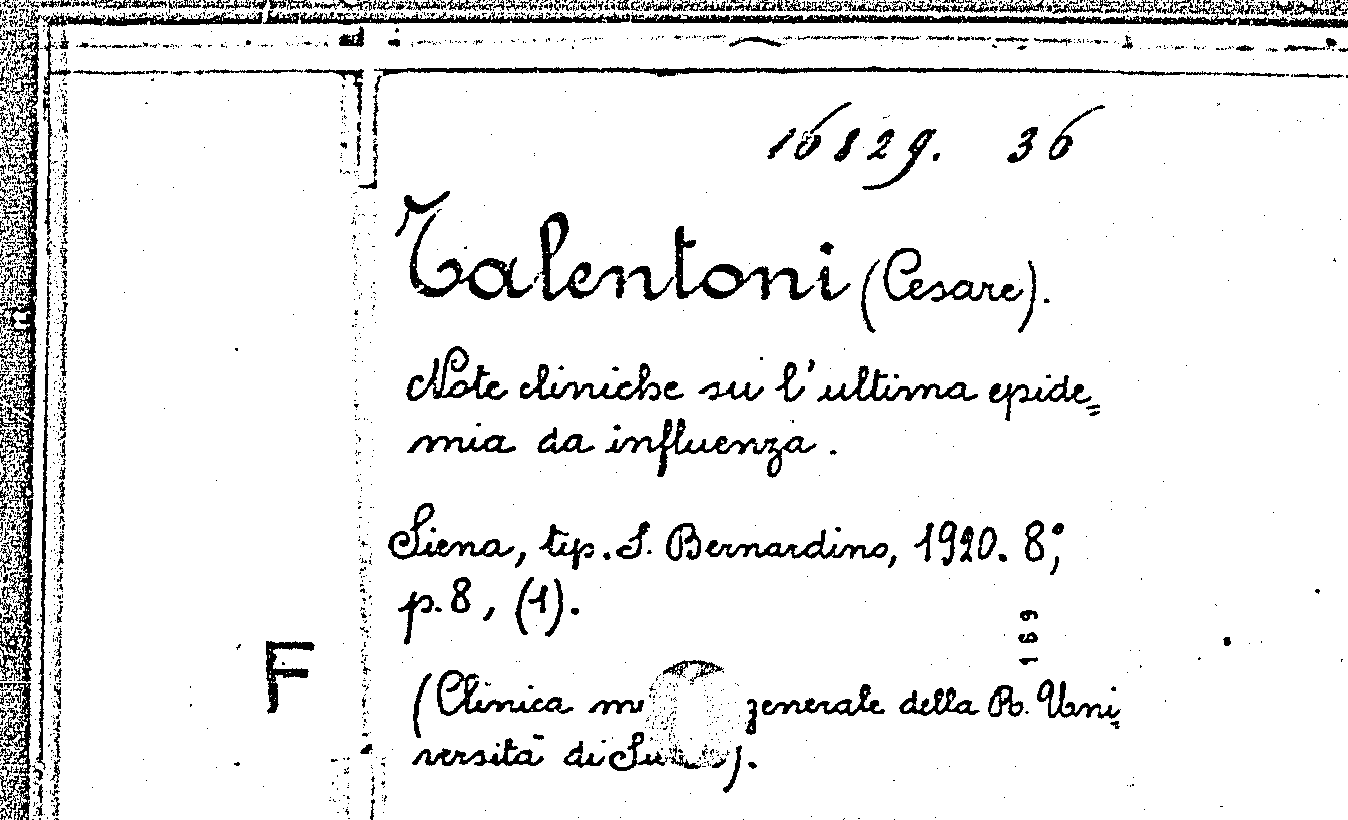 16829. 36
Talentoni (Cesare).
Note cliniche su l'ultima epide=
mia da influenza.
Siena, tip. S. Bernardino, 1920. 8°,
p. 8, (1).
169
F
(Clinica generale della R. Uni=
versità di